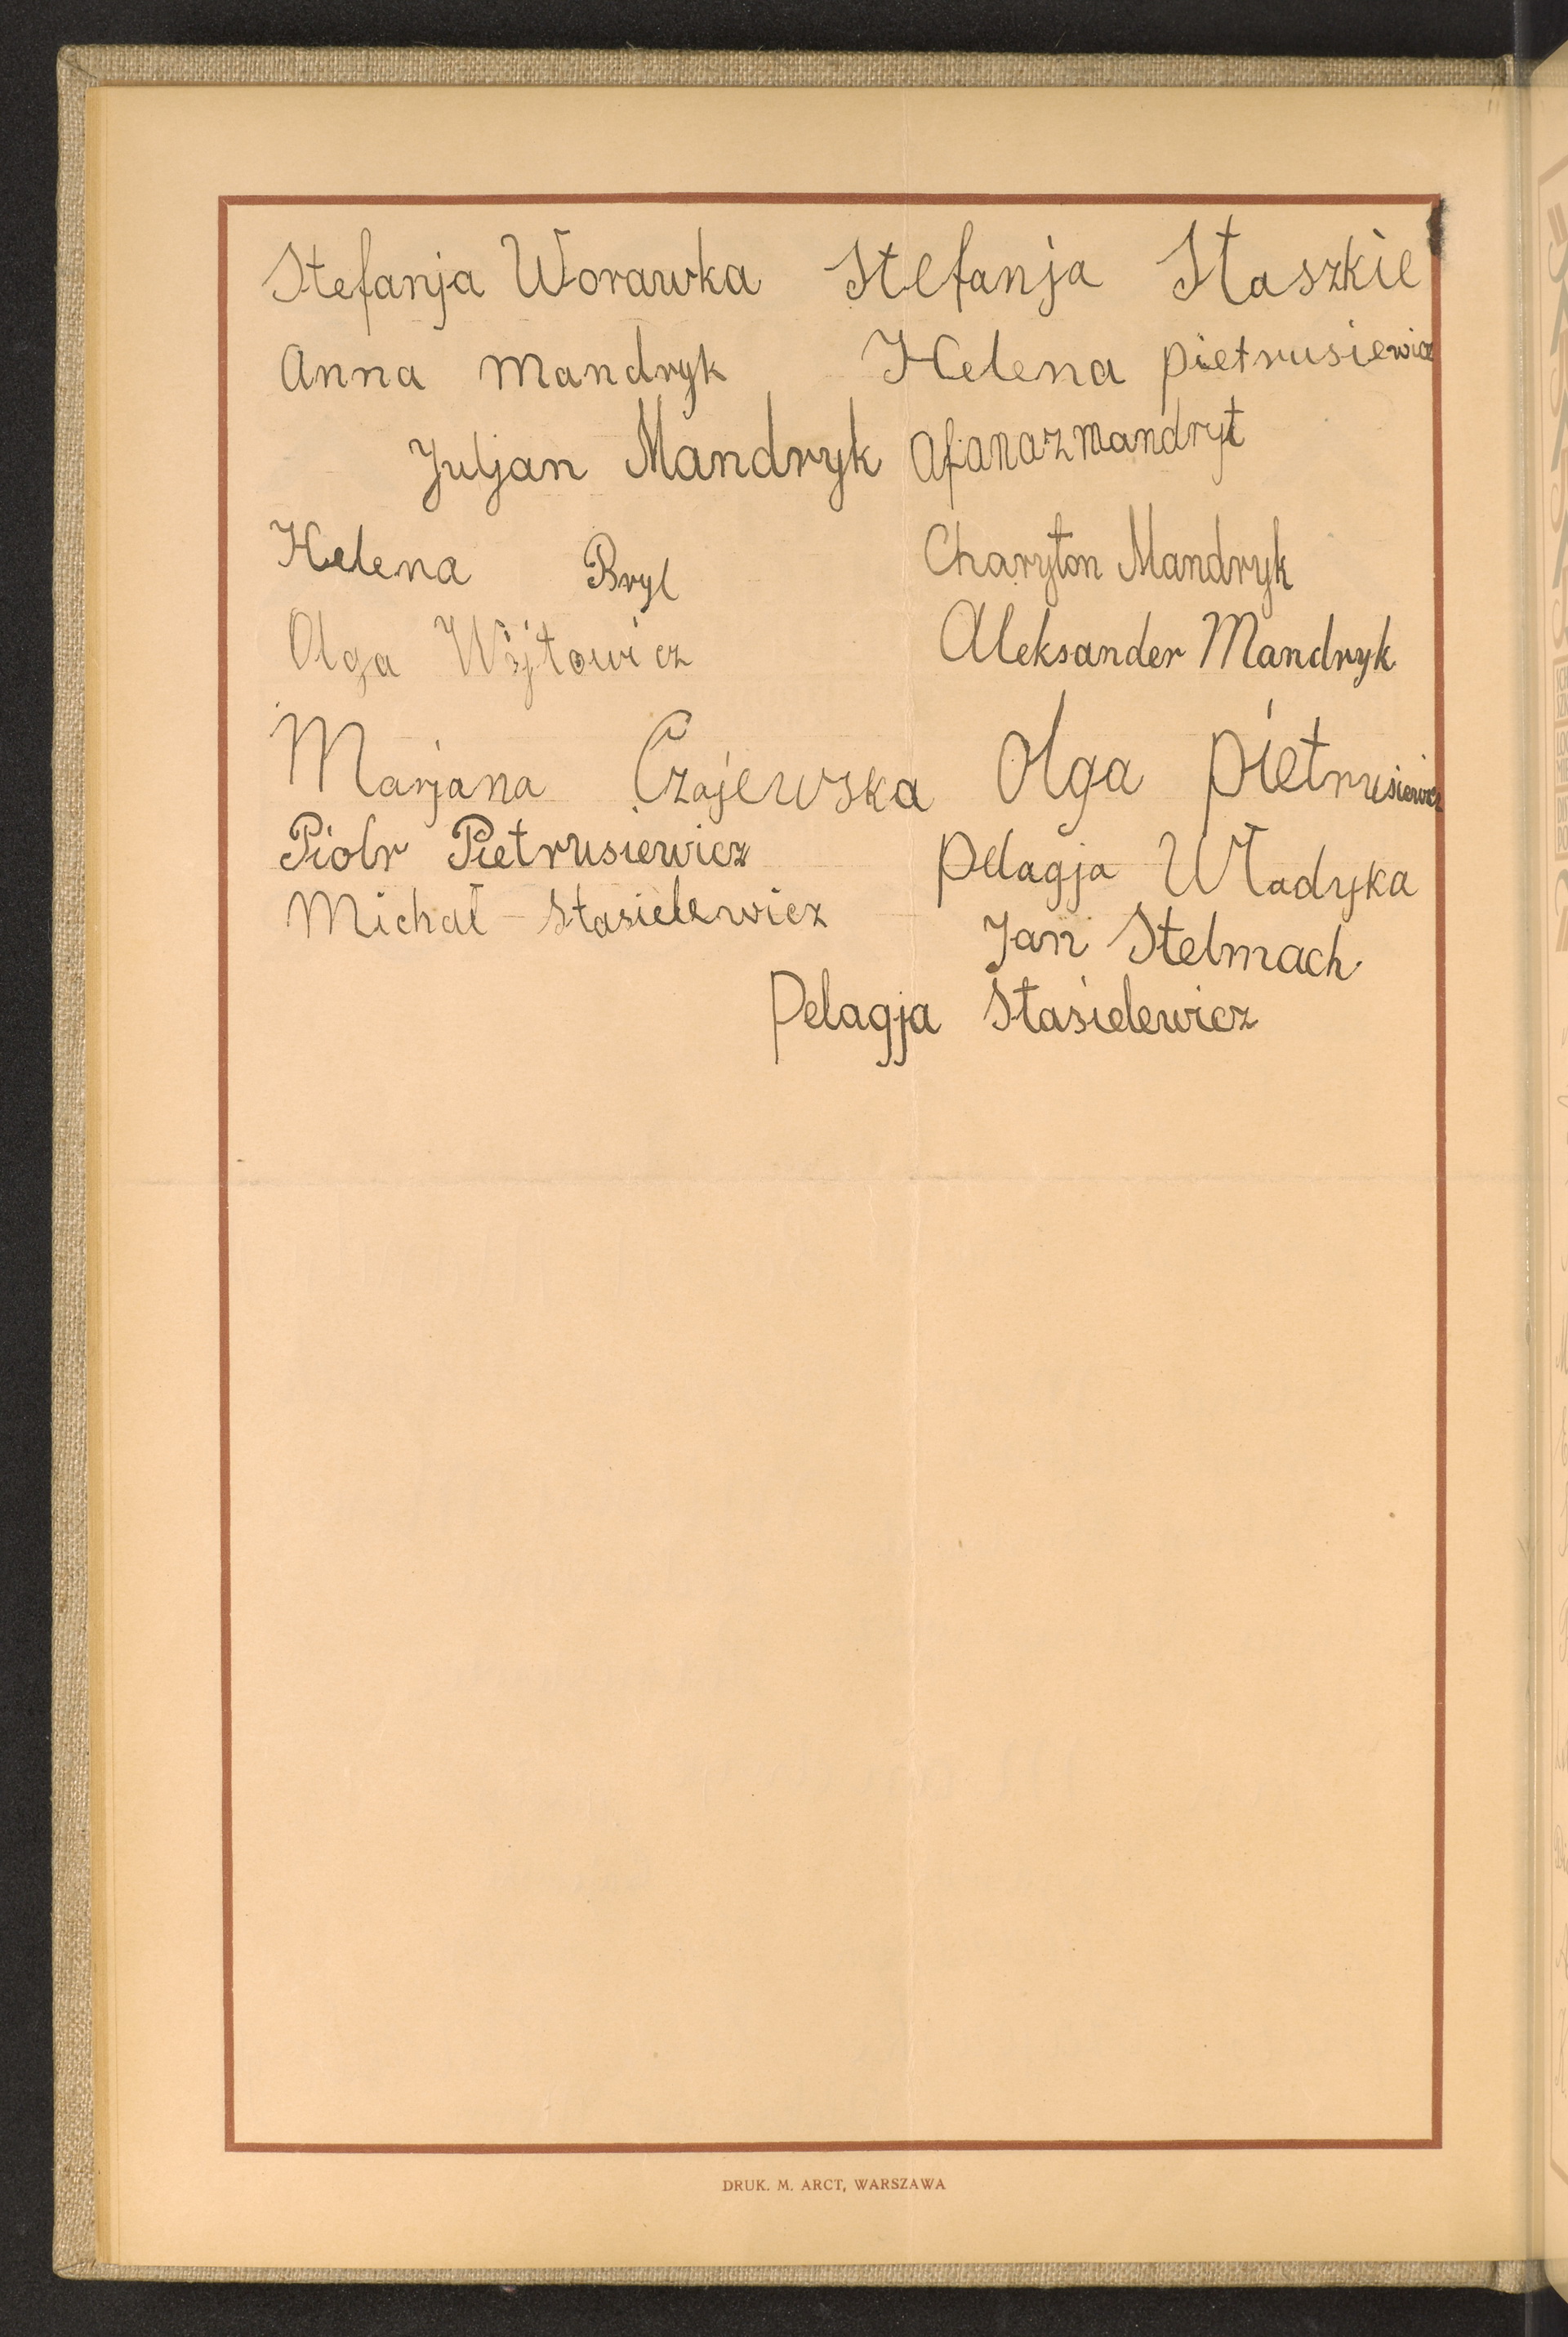 Stefanja Worawka Stefanja Staszkie
Anna Mandryk Helena Pietrusiewicz
Juljan Mandryk Afanaz Mandryt
Helena Bryl Charyton Mandryk
Olga Wójtowicz Aleksander Mandryk
Marjana Czajewska Olga Pietrusiewicz
Piotr Pietrusiewicz Pelagja Władyka
Michał Stasielewicz Jan Stelmach
Pelagja Stasielewicz
DRUK. M. ARCT, WARSZAWA